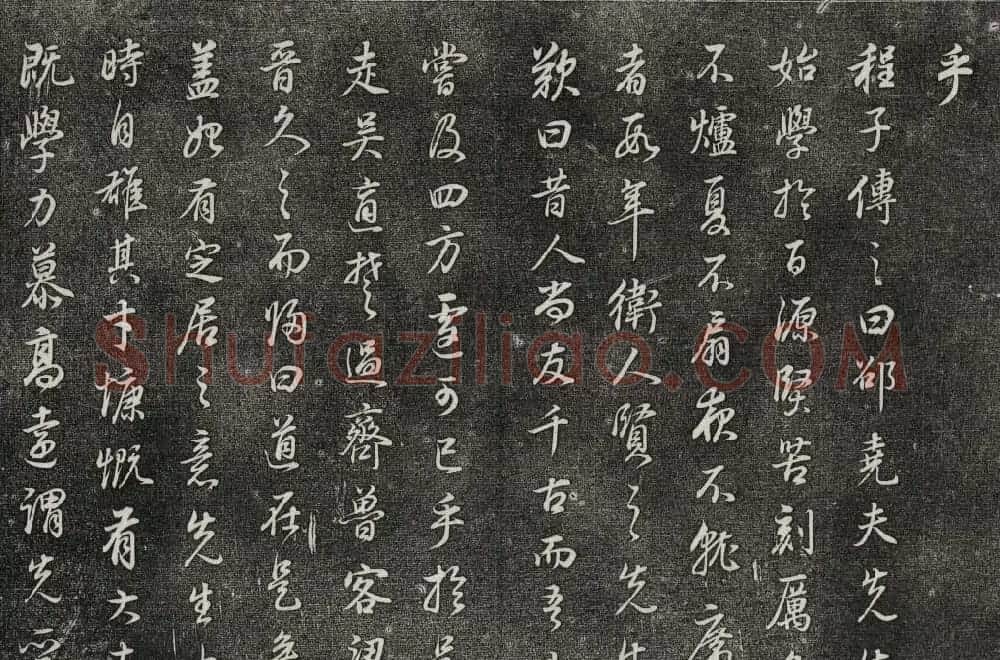 乎
程子傳之曰邵堯夫先
始學於百源堅苦刻厲
不爐夏不扇夜不就席
者數年衛人賢之先生
歎曰昔人尚友千古而吾
嘗及四方遽可已乎於是
走吳適楚過齊魯客梁
晉久之而歸曰道在是
蓋始有定居之意先生
時自雄其才慷慨有大
既學力慕高遠謂先
Shufaziliao.COM